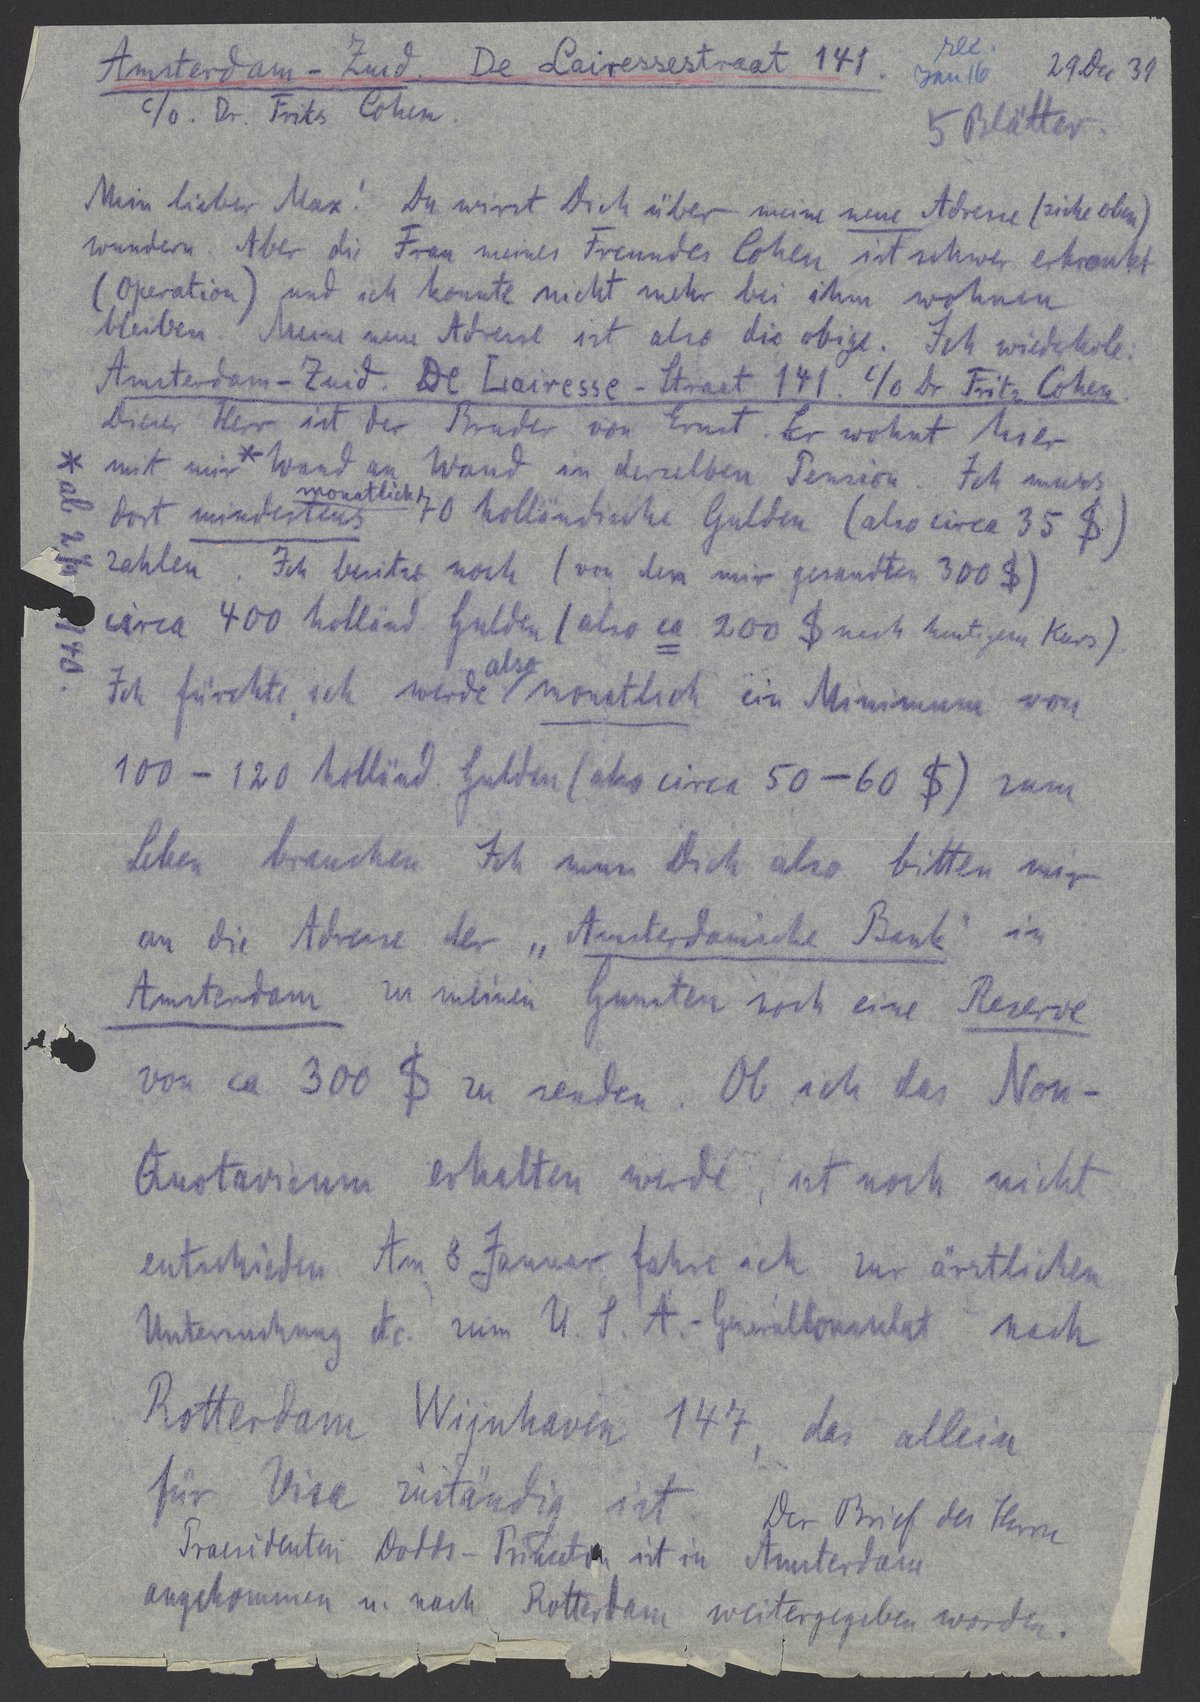 Amsterdam - Zuid. De Lairessestraat 141.
rec.
Jan 16
29 Dec 39
c/o. Dr. Frits Cohen.
5 Blätter.
Mein lieber Max! Du wirst Dich über meine neue Adresse (siehe oben)
wundern. Aber die Frau meines Freundes Cohen ist schwer erkrankt
(Operation) und ich konnte nicht mehr bei ihm wohnen
bleiben. Meine neue Adresse ist also die obige. Ich wiederhole:
Amsterdam - Zuid. De Lairesse - Straat 141. c/o Dr Frits Cohen.
Dieser Herr ist der Bruder von Ernst. Er wohnt hier
mit mir * Wand an Wand in derselben Pension. Ich muss
monatlich
dort mindestens 70 holländische Gulden (also circa 35 $)
zahlen. Ich besitze noch (von den mir gesandten 300 $)
circa 400 holländ. Gulden (also ca 200 $ nach heutigem Kurs).
* ab 2/I 1940.
also
Ich fürchte, ich werde monatlich ein Minimum von
100 - 120 holländ. Gulden (also circa 50 - 60 $) zum
Leben brauchen Ich muss Dich also bitten mir
an die Adresse der „Amsterdamsche Bank" in
Amsterdam zu meinen Gunsten noch eine Reserve
von ca 300 $ zu senden. Ob ich das Non-
Quotavisum erhalten werde, ist noch nicht
entschieden. Am 8 Januar fahre ich zur ärztlichen
Untersuchung etc. zum U. S. A. - Generalkonsulat nach
Rotterdam Wijnhaven 147, das allein
für Visa zuständig ist. Der Brief des Herrn
Praesidenten Dodds - Princeton ist in Amsterdam
angekommen u. nach Rotterdam weitergegeben worden.